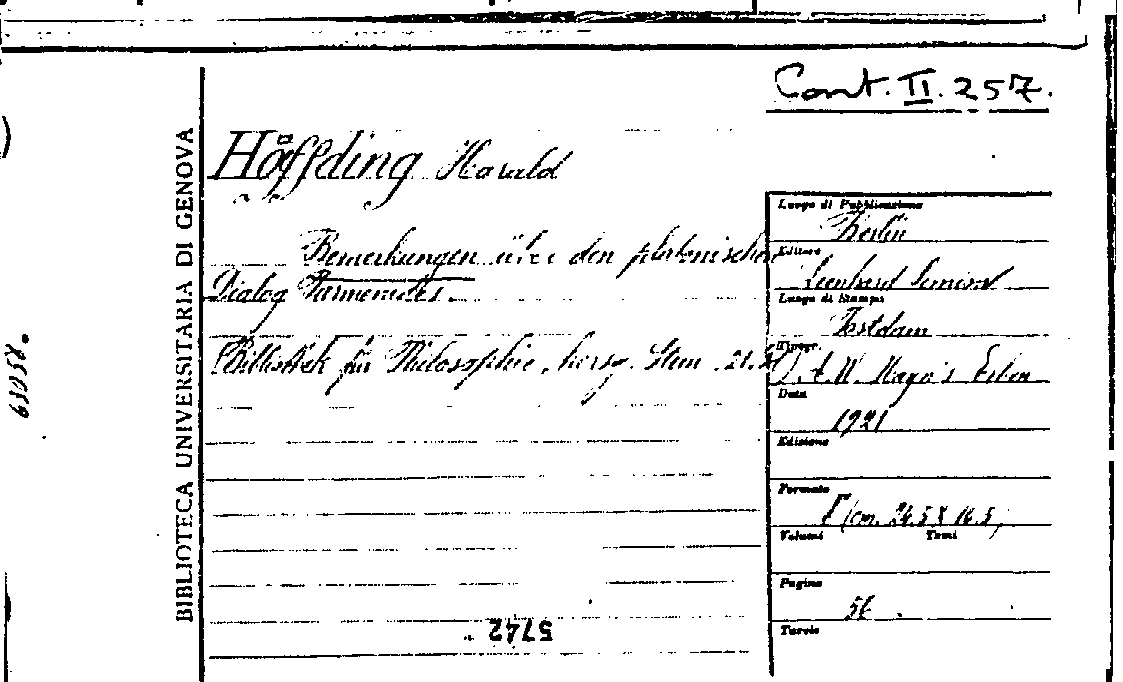 Cont. II. 257.
BIBLIOTECA UNIVERSITARIA DI GENOVA
Höffding Harald
Bemerkungen über den platonischen
Dialog Parmenides.
Bibliothek für Philosophie, herzg. Stein. 21.
Luogo di Pubblicazione
Berlin
Editore
Leonhard Simion
Luogo di Stampa
Postdam
Data
1921
Edizione
Formato
(cm. 24.5 X 16.5)
Volumi Tomi
Pagine
56
Tavole
5742